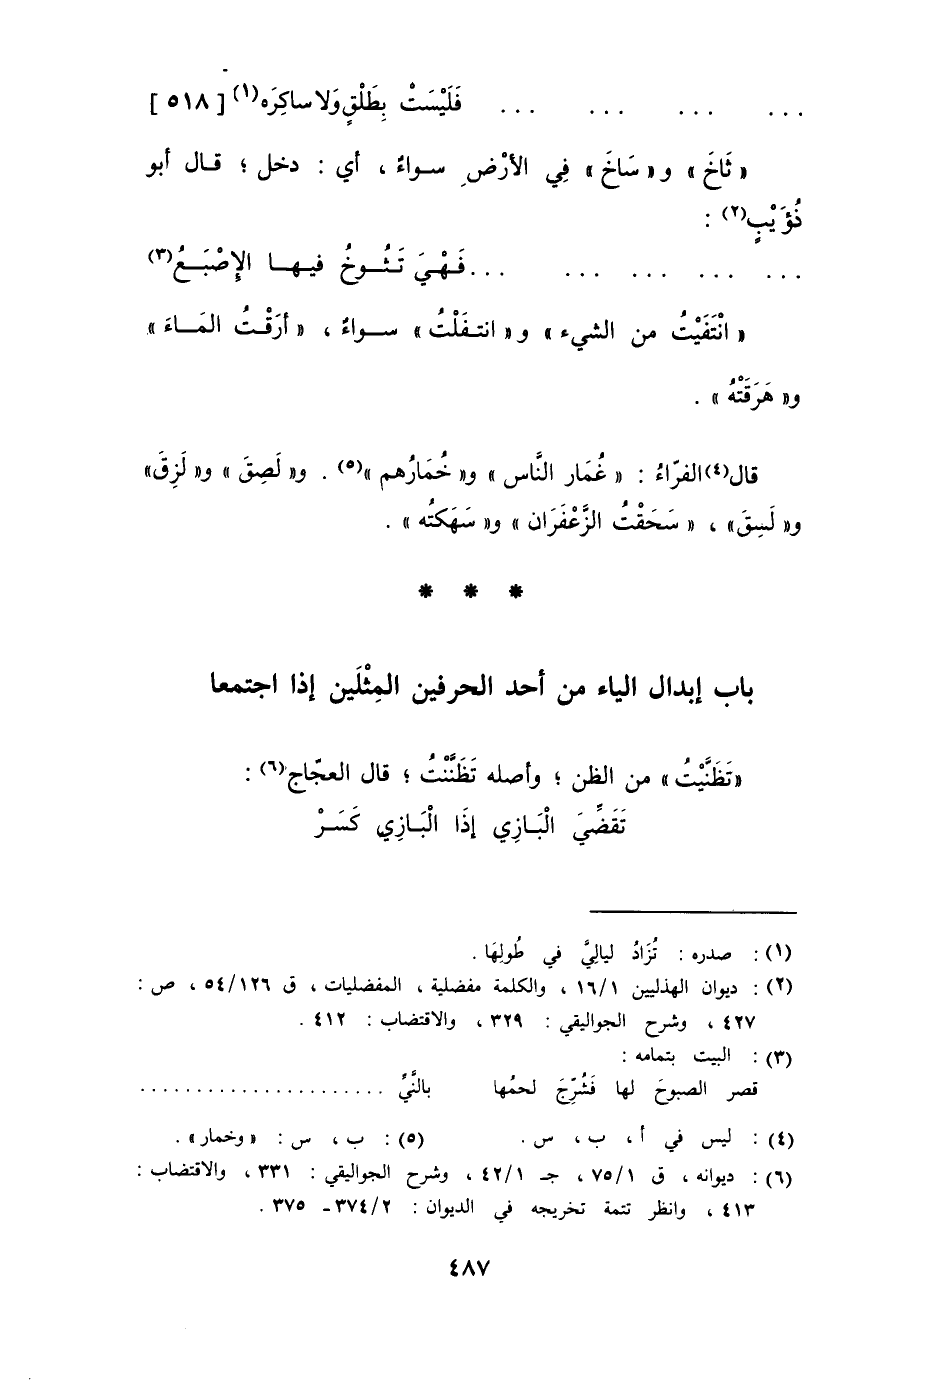 ... ... ... ... فَلَيْسَتْ بِطَلْقٍ وَلا ساكِرَه(١) [ ٥١٨ ]
« ثَاخَ » و « سَاخَ » فِي الأرْضِ سـواءٌ ، أي : دخل ؛ قـال أبو
ذُؤَيْبٍ(٢) :
... ... ... ... ... فَـهْـيَ تَـثُـوخُ فيـهـا الإصْبَـعُ(٣)
« انْتَفَيْتُ من الشيء » و « انتـفَلْتُ » سـواءٌ ، « أرَقْـتُ المَـاءَ »
و« هَرَقْتُهُ » .
قال(٤) الفرّاءُ : « غُمَار النَّاس » و« خُمَارُهم »(٥) . و« لَصِقَ » و« لَزِقَ »
و« لَسِقَ » ، « سَحَقْتُ الزَّعْفَرَان » و« سَهَكتُه » .
* * *
باب إبدال الياء من أحد الحرفين المِثْلَين إذا اجتمعا
« تَظَنَّيْتُ » من الظن ؛ وأصله تَظَنَّنْتُ ؛ قال العجّاج(٦) :
تَقَضِّيَ الْبَـازِي إذَا الْبَـازِي كَسَـرْ
(١) : صدره : تُزَادُ ليالِيَّ في طُولِهَا .
(٢) : ديوان الهذليين ١٦/١ ، والكلمة مفضلية ، المفضليات ، ق ٥٤/١٢٦ ، ص :
٤٢٧ ، وشرح الجواليقي : ٣٢٩ ، والاقتضاب : ٤١٢ .
(٣) : البيت بتمامه :
قصر الصبوحَ لها فَشُرِّجَ لحمُها بالنَّيِّ ......................
(٤) : ليس في أ ، ب ، س . (٥) : ب ، س : « وخمار » .
(٦) : ديوانه ، ق ٧٥/١ ، جـ ٤٢/١ ، وشرح الجواليقي : ٣٣١ ، والاقتضاب :
٤١٣ ، وانظر تتمة تخريجه في الديوان : ٣٧٤/٢ ـ ٣٧٥ .
٤٨٧